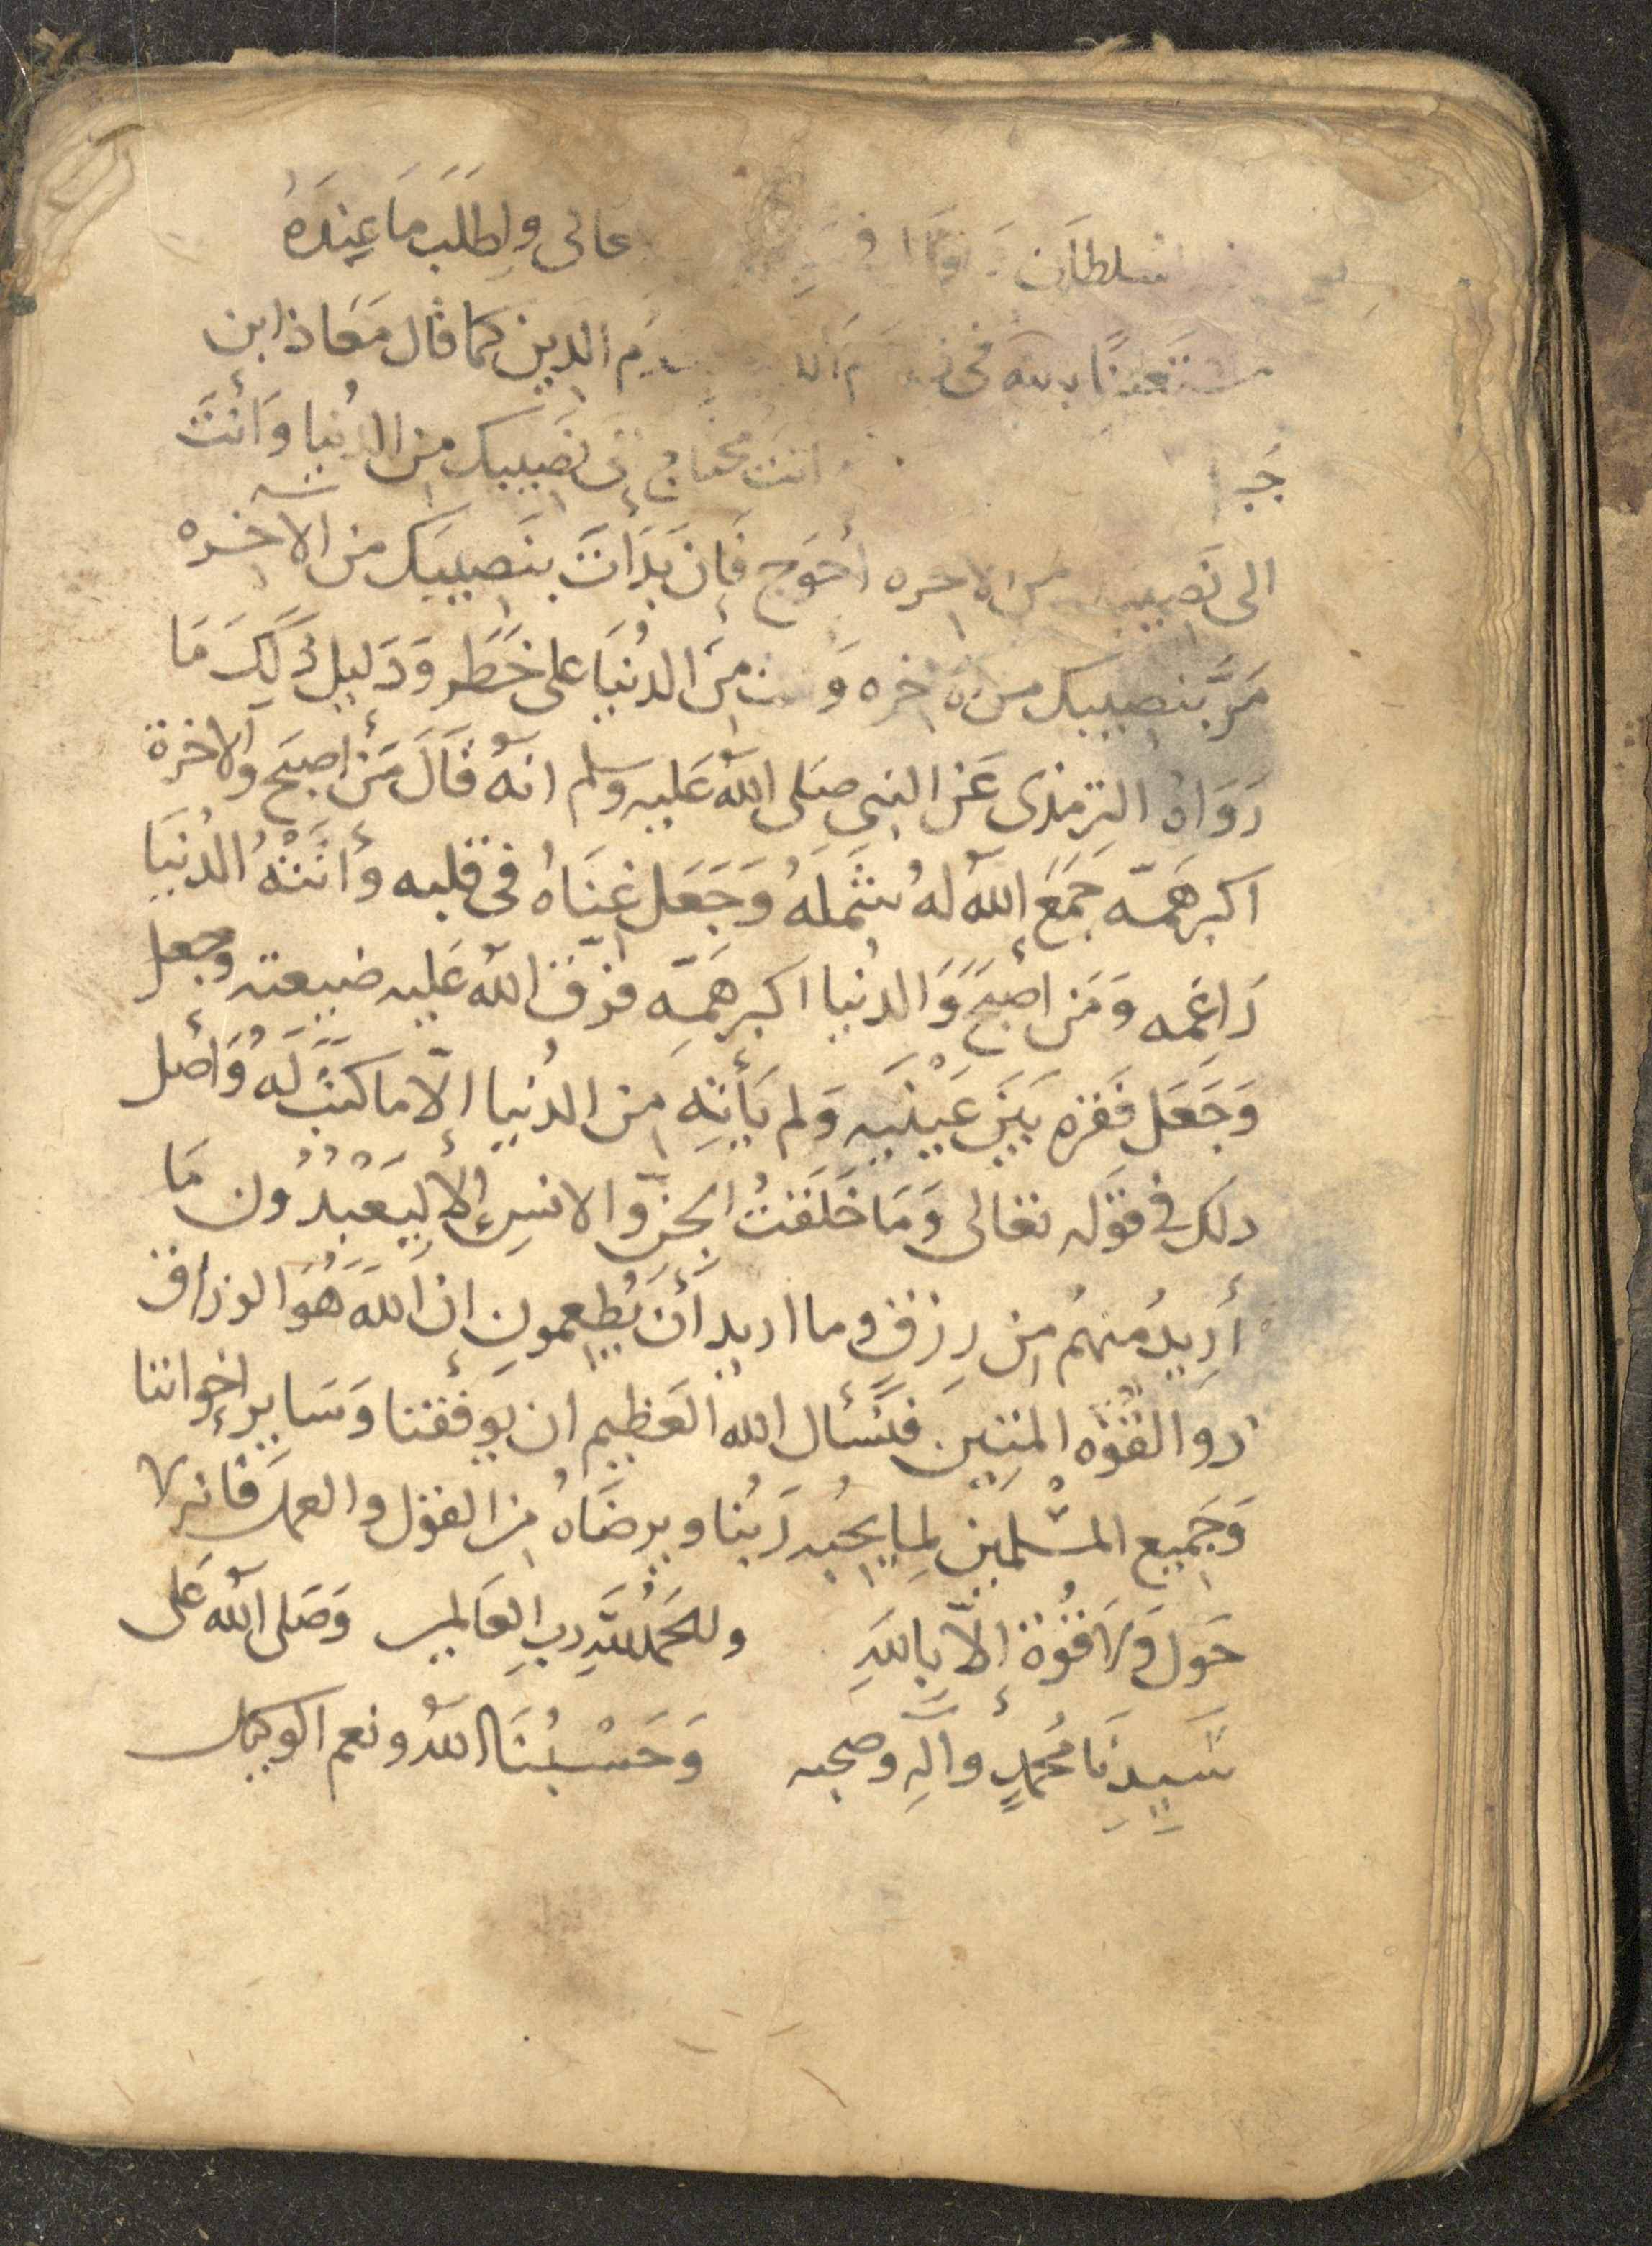 السلطان عالى وِطَلَب مَا عِندَهُ
مستَعينًا بالله فى الدين كما قال مَعَاذ ابن
جَبـ انتَ محتاجٌ الى نَصِيبِك مِن الدُنيا وَأنتَ
الى نَصِيبِك من الاخره أحوَج فَإن بَدَأتَ بنَصِيبِكَ من الآخره
مَرَّ بنصِيبِك من الدُنيَا على خَطَر وَدَليل ذَلِكَ مَا
رَوَاهُ الترمذى عَن النبى صَلى اللهُ عَليه وسلم انه قَالَ مَن أصبَح والآخرة
اكبر هَمّه جَمَعَ اللهُ لهُ شَملَهُ وَجَعَل غِنَاهُ فى قلبه وَأتَتْهُ الدُنيَا
رَاغِمه وَمَن أصبَح وَالدُنيا اكبر هَمّه فرّق اللهُ عَليه ضيعته وجعل
وَجَعَل فَقره بَيَن عَيْنَيه وَلم يَأتِهِ مِن الدُنيا الّا ما كتبَ لَهُ وَأصل
ذلك فى قوَله تعَالى وَمَا خَلَقتُ الجِنّ والانسِ إلا لِيَعْبُدُون مَا
أرِيدُ مِنهُم مِن رِزق وما اريد أن يُطعِمونِ ان اللهَ هُوَ الرزاق
ذو القُوّه المتِين فَنَسأل الله العَظيم ان يوَفقنا وَسَاير إخواننا
وَجَميع المسْلمين لِما يحُبه رَبُنا ويرضَاهُ مِن القوَل والعمل فَانه لا
حَول وَلَا قُوة إلّا بِاللهِ والحَمدُ لله رب العَالمين وَصَلى اللهُ عَلى
سَيِدِنَا مُحَمدٍ وآلهِ وصحبه وَحَسْبُنَا اللهُ ونعم الوكيل